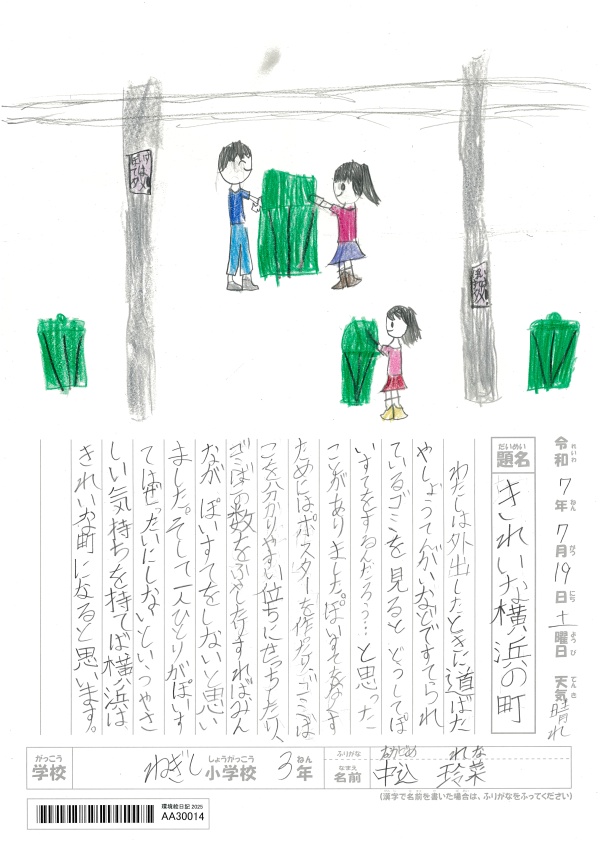 令和7年7月19日土曜日 天気晴れ
れいわ ねん がつ にち ようび てんき
だいめい
題名 きれいな横浜の町
わたしは外出したときに道ばた
やしょうてんがいなどですてられ
ているゴミを見ると どうしてぽ
いすてをするんだろう…と思った
ことがありました。ぽいすてをなくす
ためにはポスターを作ったり、ゴミば
こを分かりやすい位ちにせっちしたり、
ゴミばこの数をふやしたりすればみん
なが ぽいすてをしないと思い
ました。そして一人ひとりがぽいす
てはぜったいにしないといういつやさ
しい気持ちを持てば横浜は
きれいな町になると思います。
がっこう
学校 ねぎし小学校 3年
しょうがっこう ねん
ふりがな なかごめ れな
なまえ
名前 中込 玲菜
(漢字で名前を書いた場合は、ふりがなをふってください)
環境絵日記 2025
AA30014